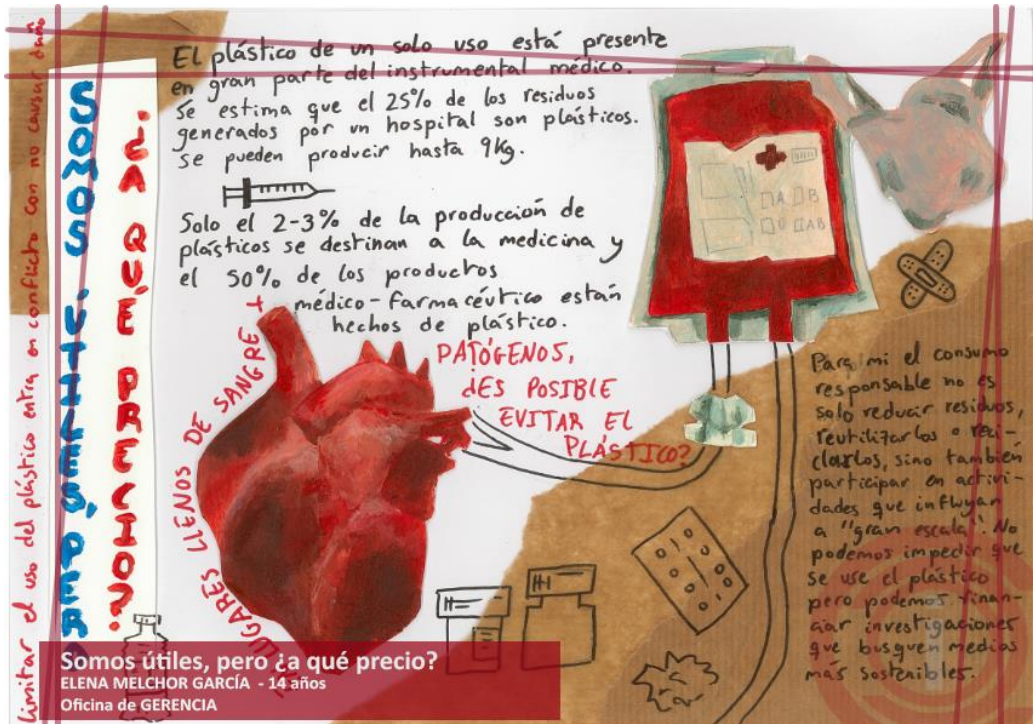 Limitar el uso del plástico entra en conflicto con no causar daño
SOMOS ÚTILES, PERO
¿A QUÉ PRECIO?
El plástico de un solo uso está presente
en gran parte del instrumental médico.
Se estima que el 25% de los residuos
generados por un hospital son plásticos.
se pueden producir hasta 9kg.
Solo el 2-3% de la producción de
plásticos se destinan a la medicina y
el 50% de los productos
médico-farmacéutico están
hechos de plástico.
LUGARES LLENOS DE SANGRE +
PATÓGENOS,
¿ES POSIBLE
EVITAR EL
PLÁSTICO?
A B
O AB
Para mi el consumo
responsable no es
solo reducir residuos,
reutilizarlos o reci-
clarlos, sino también
participar en activi-
dades que influyan
a "gran escala". No
podemos impedir que
se use el plástico
pero podemos finan-
ciar investigaciones
que busquen medios
más sostenibles.
Somos útiles, pero ¿a qué precio?
ELENA MELCHOR GARCÍA - 14 años
Oficina de GERENCIA